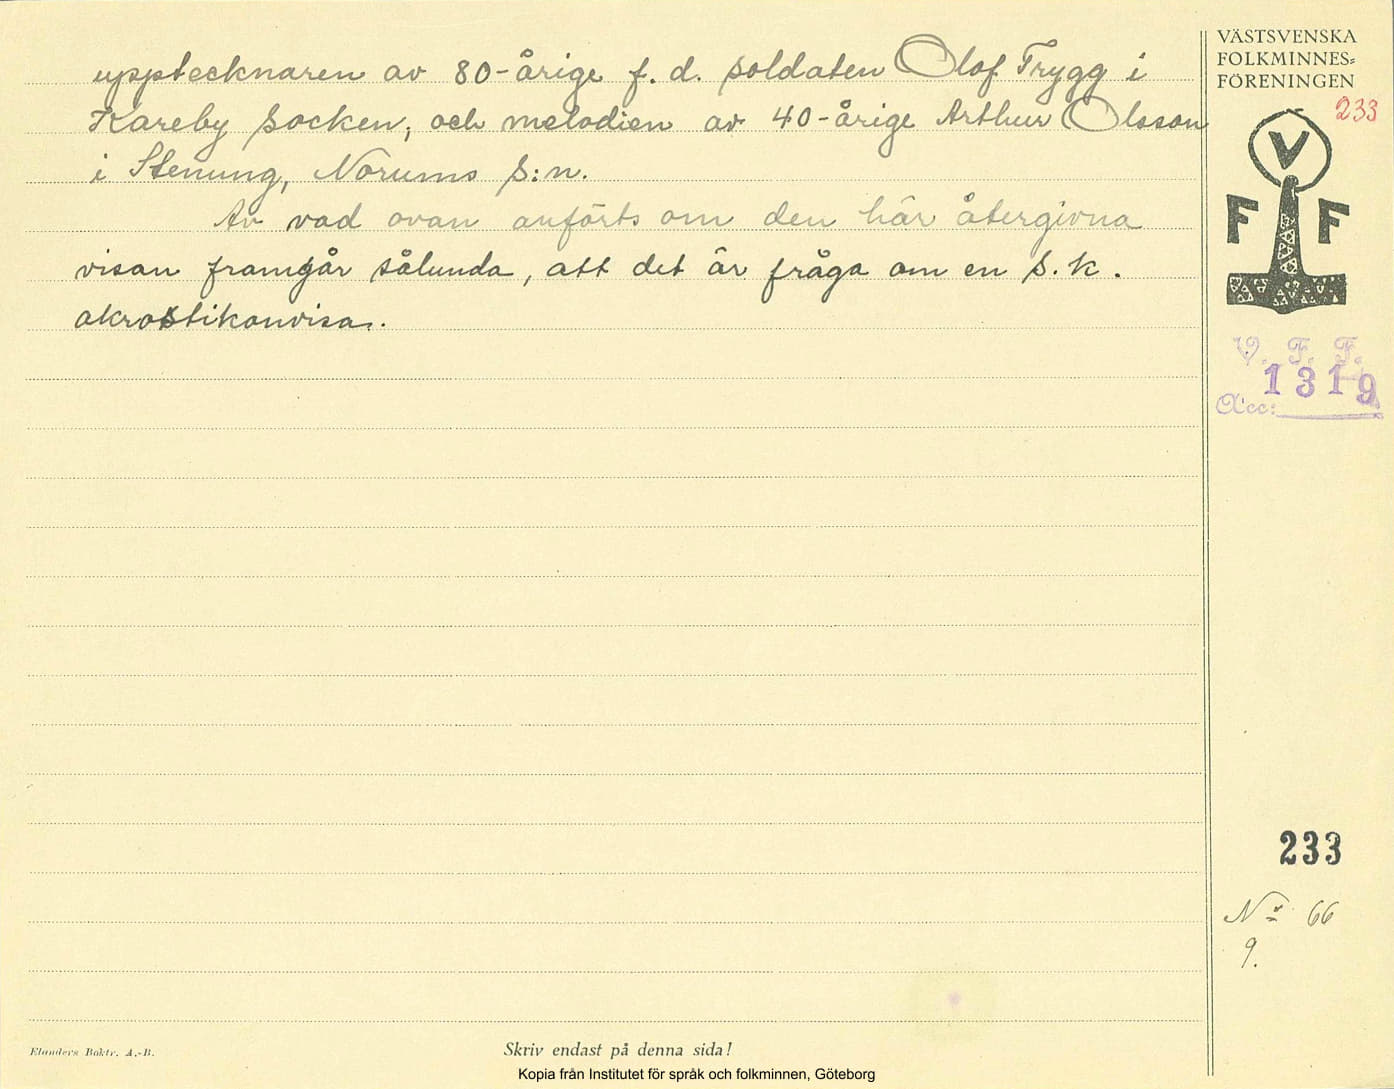 upptecknaren av 80-årige f. d. soldaten Olof Trygg i
Kareby socken, och melodien av 40-årige Arthur Olsson
i Stenung, Norums s:n.
Av vad ovan anförts om den här återgivna
visan framgår sålunda, att det är fråga om en s.k.
akrostikonvisa.
VÄSTSVENSKA
FOLKMINNES-
FÖRENINGEN
233
V
F F
V. F. F.
1319
Acc:
233
No 66
9.
Elanders Boktr. A.-B.
Skriv endast på denna sida!
Kopia från Institutet för språk och folkminnen, Göteborg